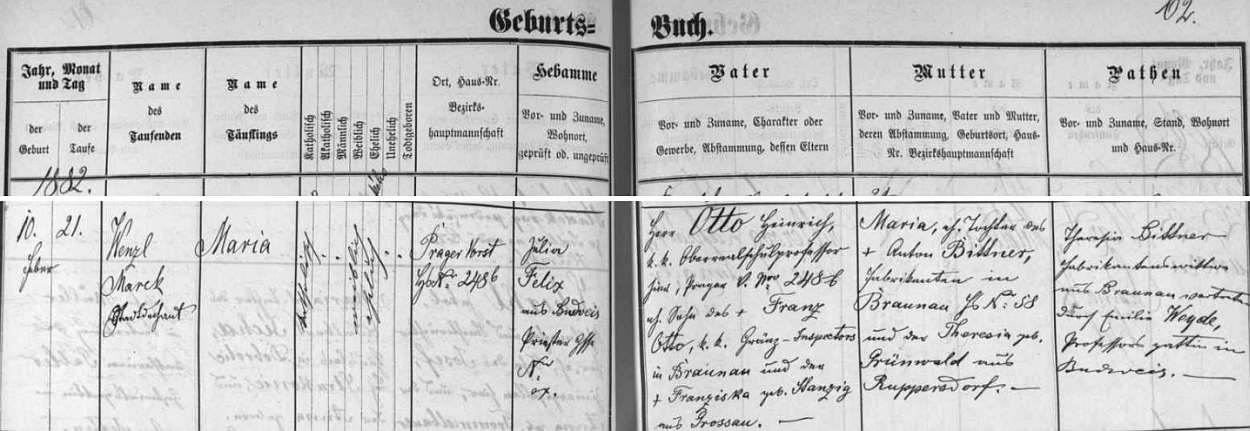 Geburts=
Buch.
62.
Jahr, Monat
und Tag
der
Geburt
der
Taufe
Name
des
Taufenden
Name
des
Täuflings
Katholisch
Akatholisch
Männlich
Weiblich
Ehelich
Unehelich
Todtgeboren
Ort, Haus-Nr.
Bezirks-
hauptmannschaft
Hebamme
Vor- und Zuname,
Wohnort,
geprüft od. ungeprüft
Vater
Vor- und Zuname, Charakter oder
Gewerbe, Abstammung, dessen Eltern
Mutter
Vor- und Zuname, Vater und Mutter,
deren Abstammung, Geburtsort, Haus-
Nr. Bezirkshauptmannschaft
Pathen
Vor- und Zuname, Stand, Wohnort
und Haus-Nr.
1882.
10.
Feber
21.
Wenzl
Marek
Stadtdechant
Maria
katholisch
weiblich
ehelich
Prager Vorst
HsNr: 248 6
Julia
Felix
aus Budweis
Priester Gsse
N.
ex.
Herr Otto Heinrich,
k. k. Oberrealschulprofessor
hier, Prager V. Nro 248 6
eh. Sohn des + Franz
Otto, k. k. Gränz-Inspectors
in Braunau und der
+ Franziska geb. Hanzig
aus Grossau. —
Maria, eh. Tochter des
+ Anton Bittner,
Fabrikanten in
Braunau Hs N: 58
und der Theresia geb.
Grünwald aus
Ruppersdorf. —
Theresia Bittner
Fabrikantenswittwe
aus Braunau vertreten
durch Emilie Weyde,
Professorsgattin in
Budweis. —